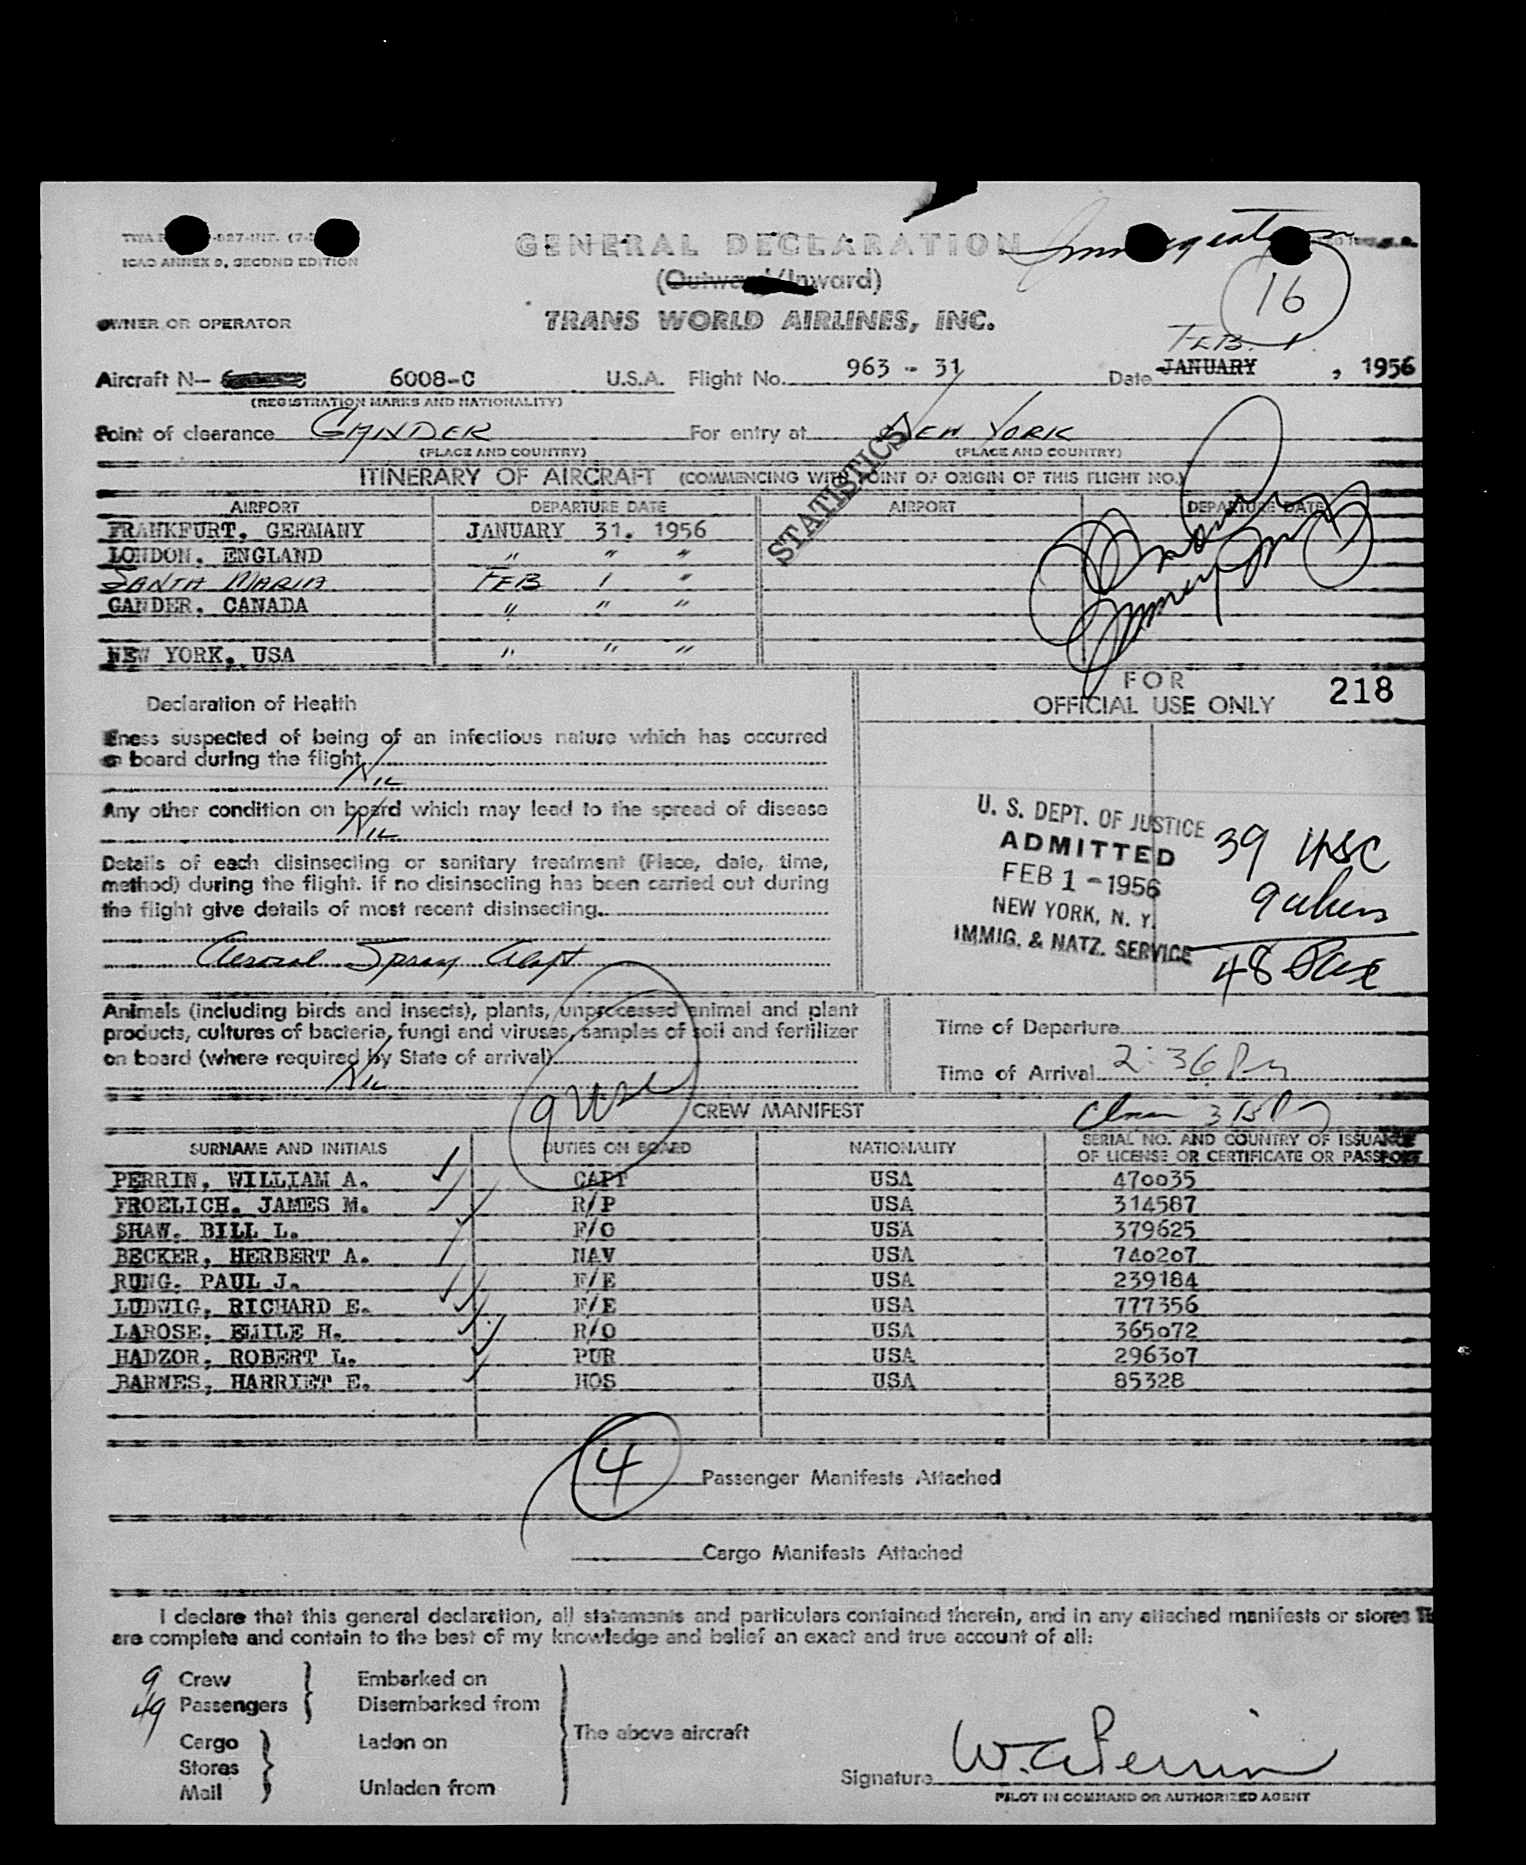 ICAO ANNEX 9, SECOND EDITION
GENERAL DECLARATION
(Outward/Inward)
16
OWNER OR OPERATOR
TRANS WORLD AIRLINES, INC.
FEB. 1
Aircraft N- 6008-C U.S.A. Flight No. 963 - 31 Date JANUARY , 1956
(REGISTRATION MARKS AND NATIONALITY)
Point of clearance GANDER For entry at NEW YORK
(PLACE AND COUNTRY) (PLACE AND COUNTRY)
STATISTICS
ITINERARY OF AIRCRAFT (COMMENCING WITH POINT OF ORIGIN OF THIS FLIGHT NO.)
AIRPORT DEPARTURE DATE AIRPORT DEPARTURE DATE
FRANKFURT, GERMANY JANUARY 31, 1956
LONDON, ENGLAND " " "
SANTA MARIA FEB 1 "
GANDER, CANADA " " "
NEW YORK, USA " " "
FOR
OFFICIAL USE ONLY 218
Declaration of Health
llness suspected of being of an infectious nature which has occurred
on board during the flight
Nil
Any other condition on board which may lead to the spread of disease
Nil
Details of each disinsecting or sanitary treatment (Place, date, time,
method) during the flight. If no disinsecting has been carried out during
the flight give details of most recent disinsecting.
Aerosol Spray
U. S. DEPT. OF JUSTICE
ADMITTED
FEB 1 - 1956
NEW YORK, N. Y.
IMMIG. & NATZ. SERVICE
39 USC
9 aliens
48 Pax
Animals (including birds and insects), plants, unprocessed animal and plant
products, cultures of bacteria, fungi and viruses, samples of soil and fertilizer
on board (where required by State of arrival)
Nil
Time of Departure
Time of Arrival 2:36 Pm
9 USC
CREW MANIFEST
SURNAME AND INITIALS DUTIES ON BOARD NATIONALITY SERIAL NO. AND COUNTRY OF ISSUANCE
OF LICENSE OR CERTIFICATE OR PASSPORT
PERRIN, WILLIAM A. CAPT USA 470035
FROELICH, JAMES M. R/P USA 314587
SHAW, BILL L. F/O USA 379625
BECKER, HERBERT A. NAV USA 740207
RUNG, PAUL J. F/E USA 239184
LUDWIG, RICHARD E. F/E USA 777356
LAROSE, EMILE H. R/O USA 365072
HADZOR, ROBERT L. PUR USA 296307
BARNES, HARRIET E. HOS USA 85328
4 Passenger Manifests Attached
Cargo Manifests Attached
I declare that this general declaration, all statements and particulars contained therein, and in any attached manifests or stores
are complete and contain to the best of my knowledge and belief an exact and true account of all:
9 Crew Embarked on
49 Passengers Disembarked from
Cargo Laden on The above aircraft
Stores
Mail Unladen from
Signature W. A. Perrin
PILOT IN COMMAND OR AUTHORIZED AGENT